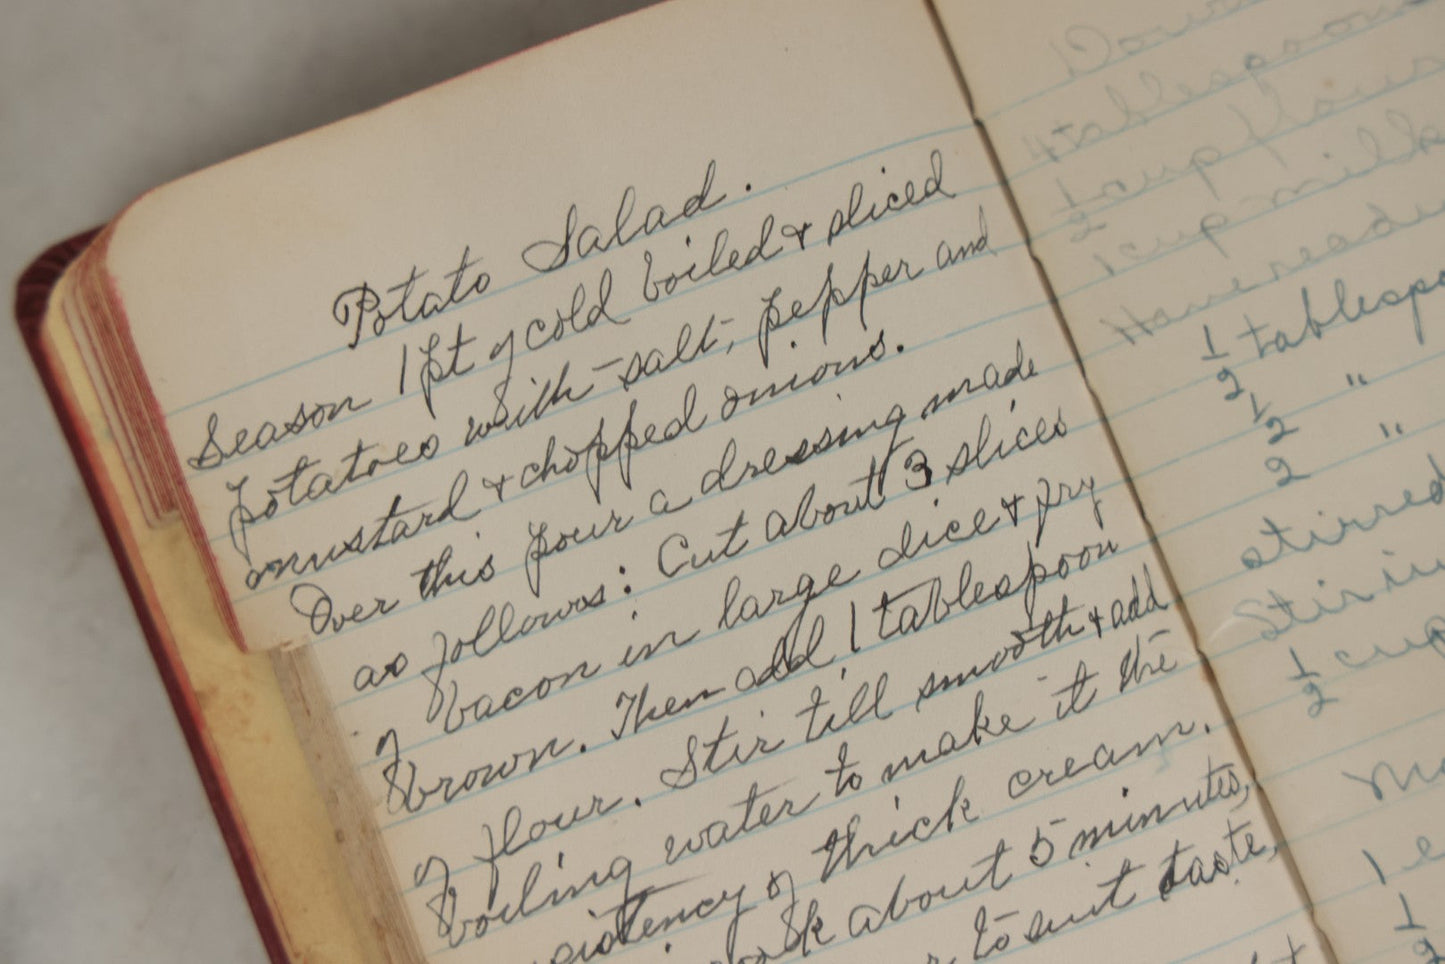 Potato Salad.
Season 1 pt of cold boiled & sliced
potatoes with salt, pepper and
mustard & chopped onions.
Over this pour a dressing made
as follows: Cut about 3 slices
of bacon in large dice & fry
brown. Then add 1 tablespoon
of flour. Stir till smooth & add
boiling water to make it the
sistency of thick cream.
about 5 minutes,
to suit taste,
4 tablespoon
1/2 cup flour
1 cup milk
Have read
1/2 tablespo
1/2 "
2 "
stirred
Stir in
1/2 cup
1
1/2